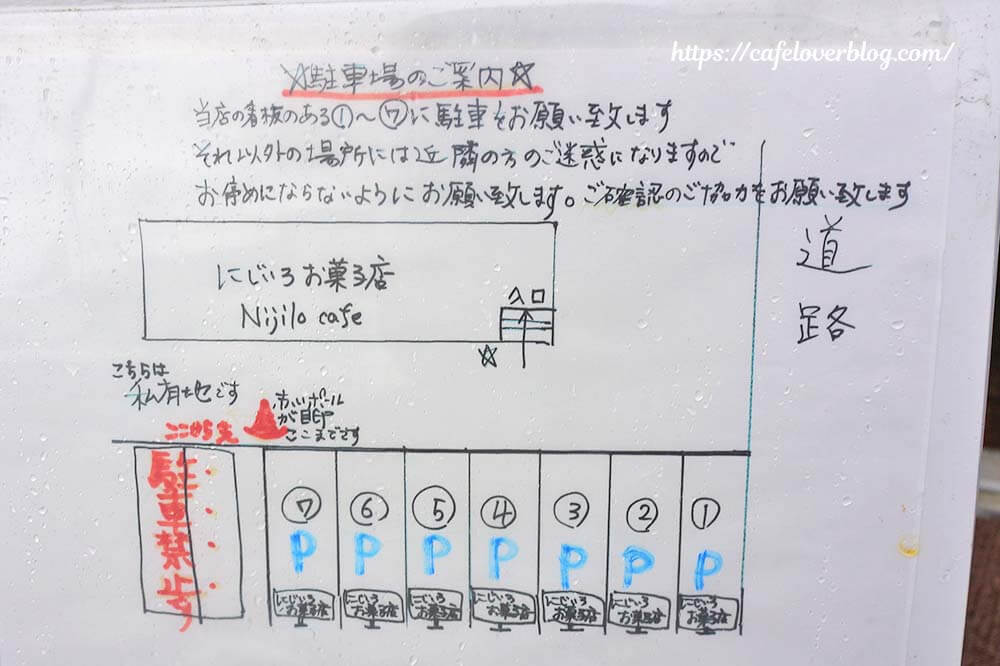 https://cafeloverblog.com/
☆駐車場のご案内☆
当店の看板のある①〜⑦に駐車をお願い致します
それ以外の場所には近隣の方のご迷惑になりますので
お停めにならないようにお願い致します。ご確認のご協力をお願い致します
道路
にじいろお菓子店
Nijilo cafe
入口
☆
こちらは
私有地です
赤いポール
が目印
ここまでです
ここから先
駐車禁止
⑦ ⑥ ⑤ ④ ③ ② ①
P P P P P P P
にじいろ にじいろ にじいろ にじいろ にじいろ にじいろ にじいろ
お菓子店 お菓子店 お菓子店 お菓子店 お菓子店 お菓子店 お菓子店